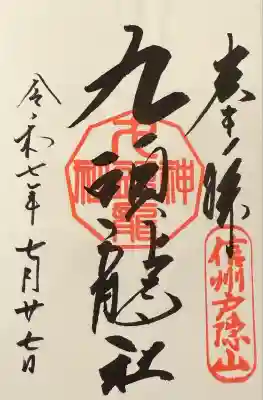 信州戸隠山
九頭龍社
九頭龍神社
令和七年七月廿七日